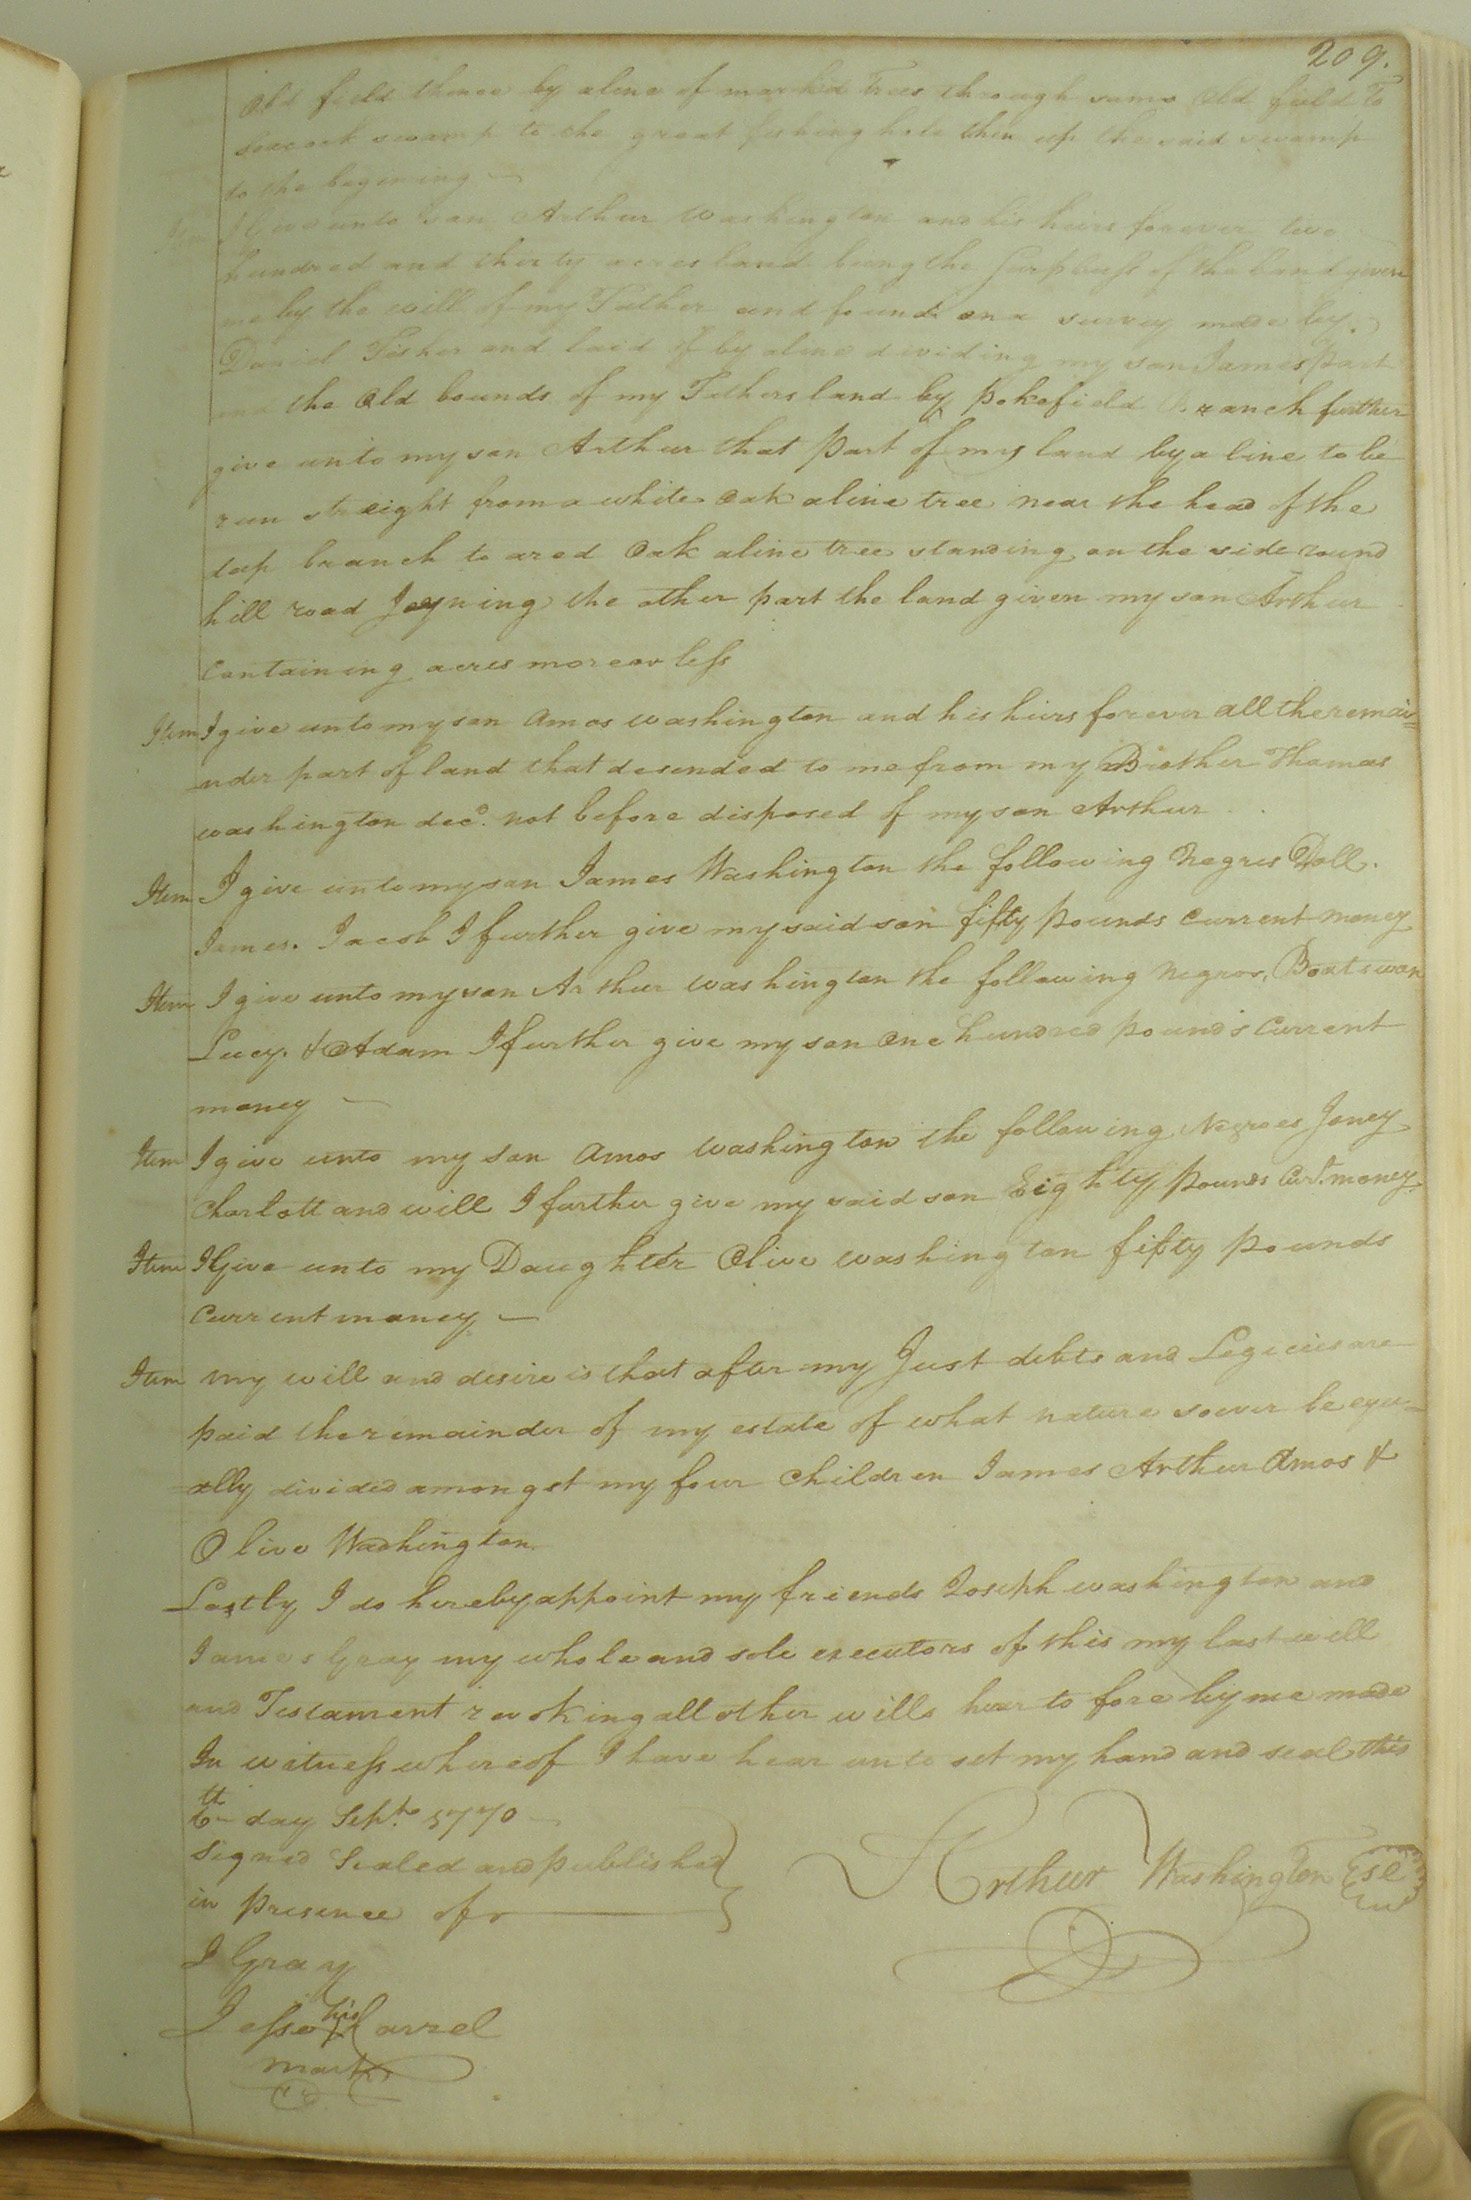 209.
Old field thence by aline of markd Trees through same Old field to
seacock swamp to the great fishing hole then up the said swamp
to the begining
Item I Give unto son Arthur Washington and his heirs forever two
hundred and thirty acres land being the Surpluss of the land given
me by the will of my Father and found on a survey made by
Daniel Fisher and laid of by aline dividing my son James part
and the Old bounds of my Fathers land by pokefield Branch further
give unto my son Arthur that part of my land by a line to be
run straight from a white Oak aline tree near the head of the
deep branch to a red Oak aline tree standing on the side round
hill road Joyning the other part the land given my son Arthur
Containing acres more or less
Item I give unto my son Amos washington and his heirs forever all the remai=
nder part of land that desended to me from my Brother Thomas
washington decd. not before disposed of my son Arthur
Item I give unto my son James Washington the following Negres Doll.
James. Jacob I further give my said son fifty pounds Current money
Item I give unto my son Arthur washington the following negros, Boatswan
Lucy. & Adam I further give my son One hundred pounds Current
money
Item I give unto my son Amos Washington the following Negroes Joney
Charlott and will I further give my said son Eighty pounds Curt. money.
Item I Give unto my Daughter Olive washington fifty pounds
Current money
Item my will and desire is that after my Just debts and Legecies are
paid the remainder of my estate of what nature soever be equ=
ally divided amongst my four Children James Arthur Amos &
Olive Washington.
Lastly I do hereby appoint my friends Joseph washington and
James Gray my whole and sole executors of this my last will
and Testament revoking all other wills hear to fore by me made
In witness whereof I have hear unto set my hand and seal this
6th day Sept. 1770
Signed Sealed and published
in presence of
Arthur Washington
J Gray
Jesse his Carrel
mark